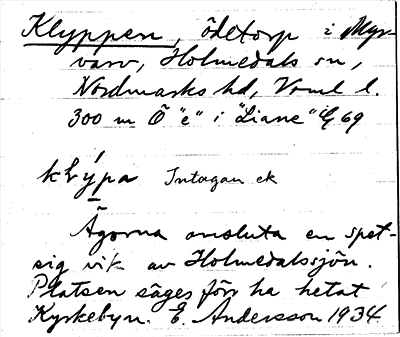 Klyppen, ödetorp i Myr-
varv, Holmedals sn,
Nordmarks hd, Vrml l.
300 m Ö "e" i "Liane" G 69
klýpa Intagan ek
Ägorna ansluta en spet-
sig vik av Holmedalssjön.
Platsen säges förr ha hetat
Kyrkebyn. E. Andersson 1934